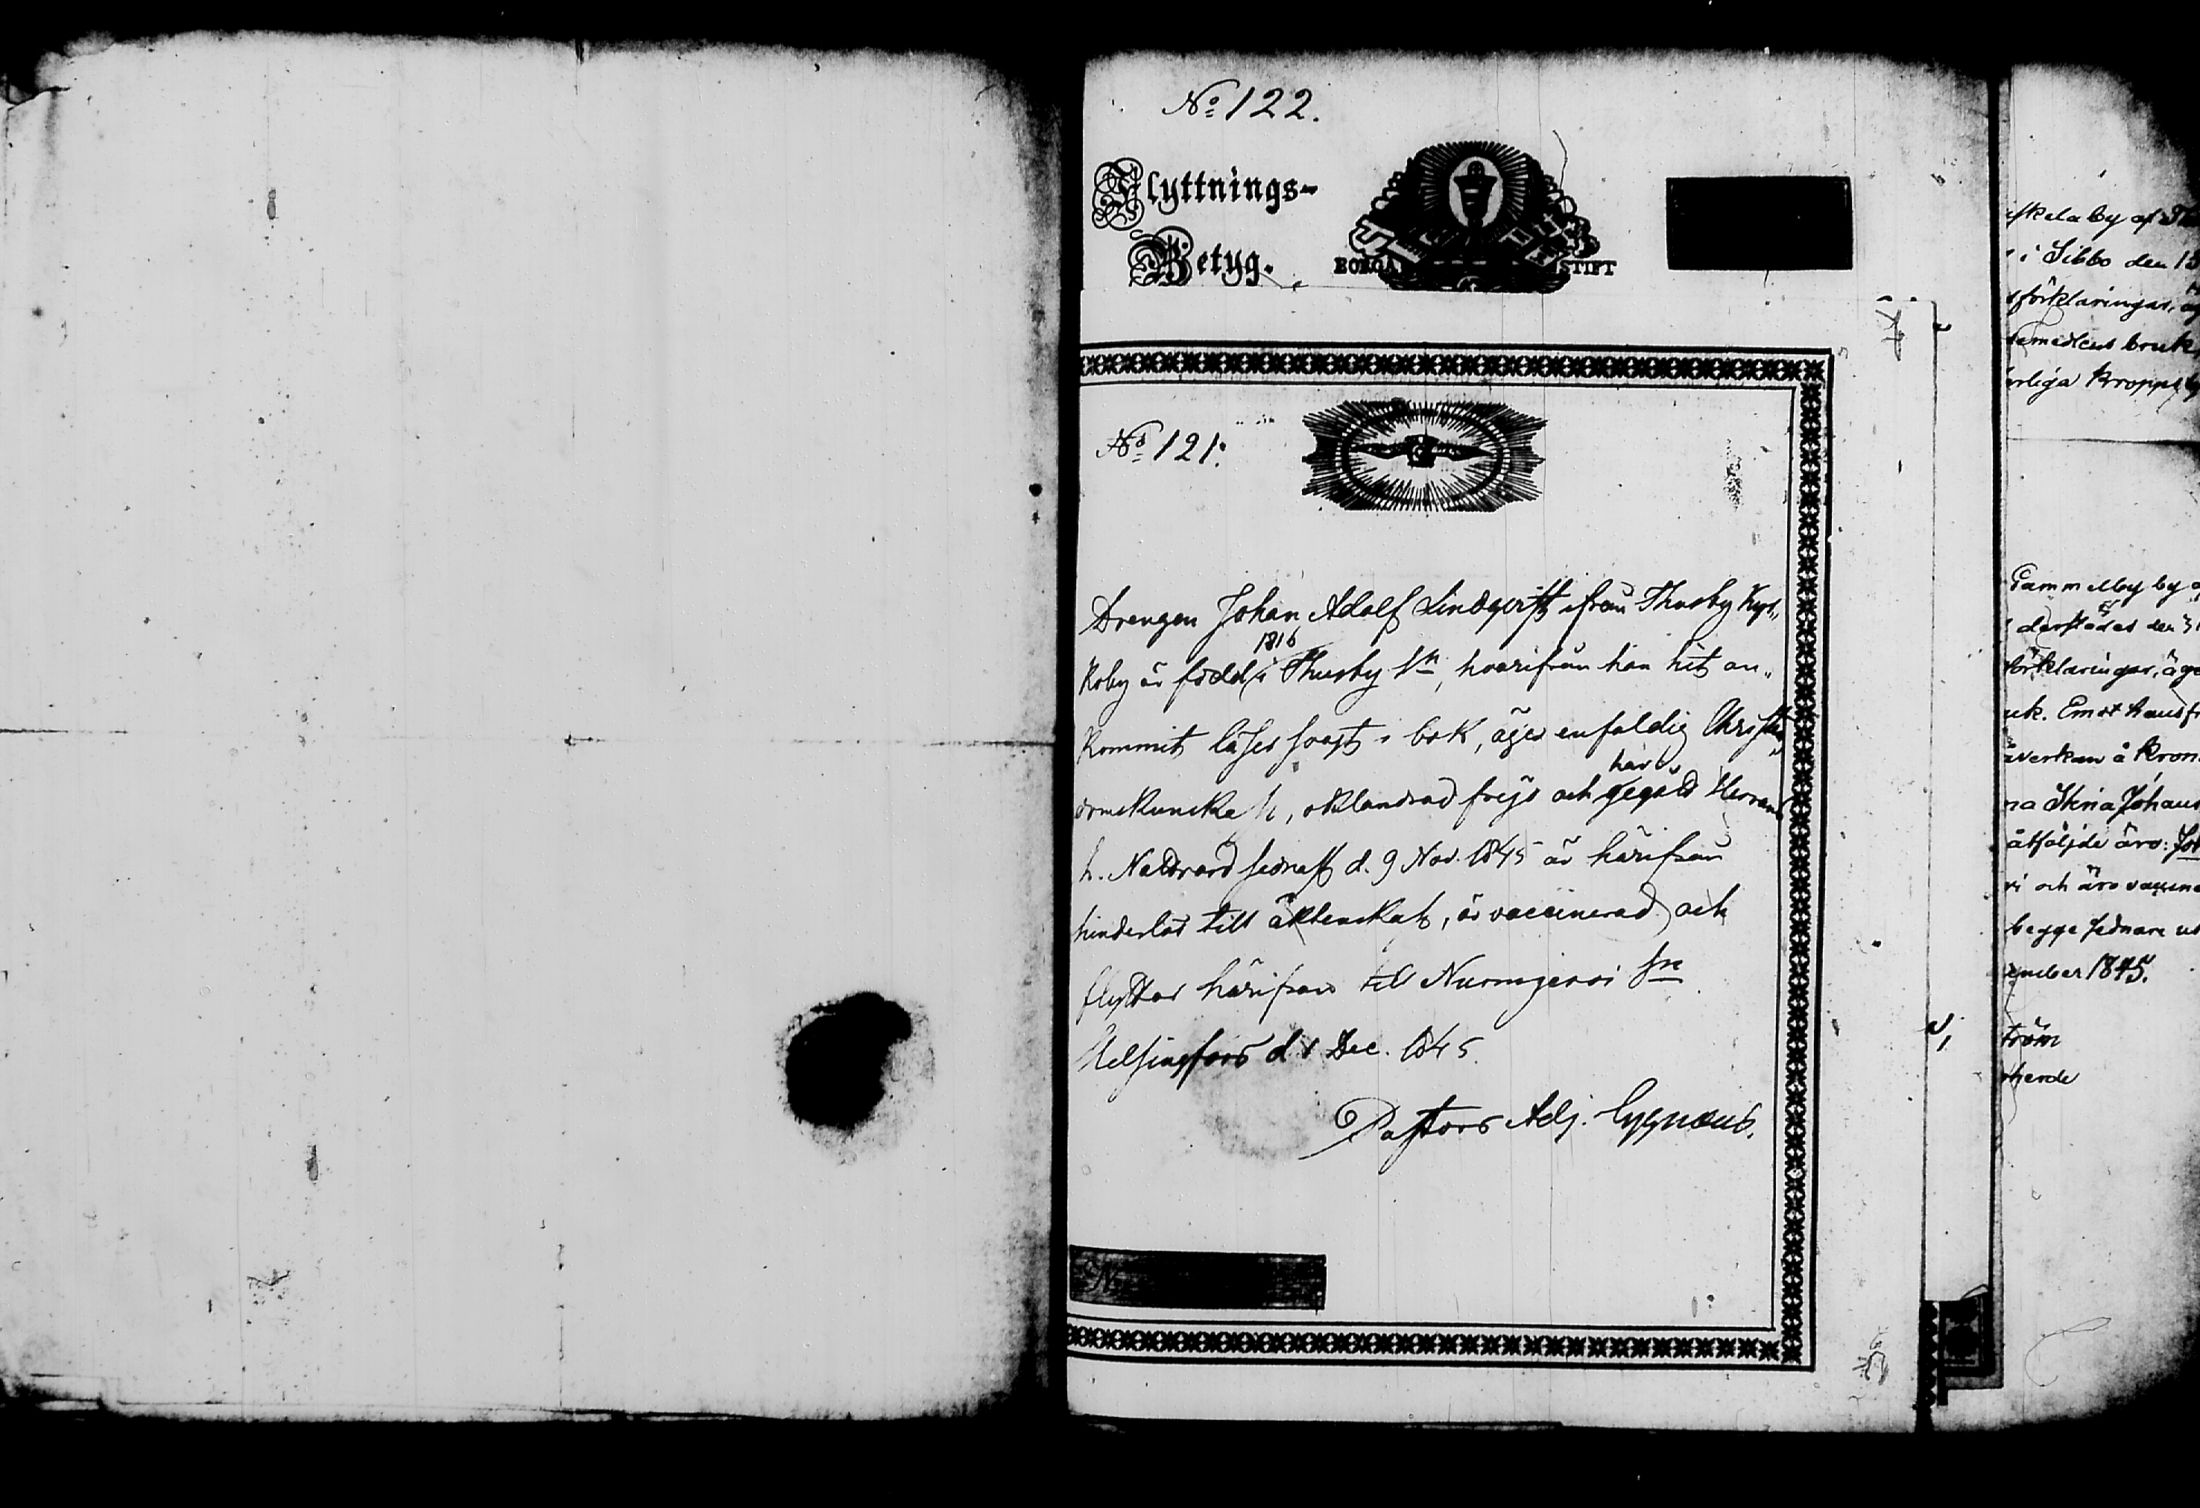 No 122.
Flyttnings-
Betyg.
BORGÅ STIFT
No 121.
Drengen Johan Adolf Lindqvist ifrån Thusby Kyr„
1816
koby är född i Thusby Sn, hvarifrån han hit an„
kommit, läser svagt i bok, äger enfaldig Christen
domskunskap, oklandrad frejd och
har
begådt Herrans
h. Nattvard sednast d. 9 Nov. 1845 är härifrån
hinderlös till äktenskap, är vaccinerad och
flyttar härifrån till Nurmijervi Sn
Helsingfors d. 1 Dec. 1845.
Pastors Adj. Cygnæus.
by af
i Sibbo den 13
förklaringar,
bruk
kropps
Gammelby by
derstädes den
förklaringar, äge
uk. Emot hans
åverkan å Kron
na Stina Johans
åtfölja äro:
och äro vaccine
begge sednare
ember 1845.
tröm
herde